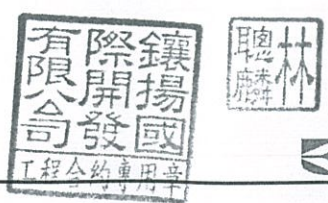 鑲揚國
際開發
有限公司
工程合約專用章
林
聰麟